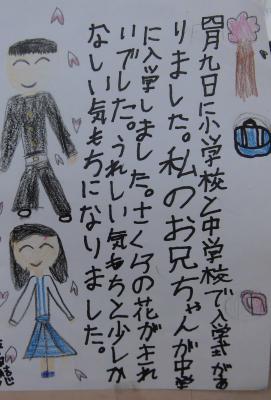 四月九日に小学校と中学校で入学式があ
りました。私のお兄ちゃんが中学
に入学しました。さくらの花がきれ
いでした。うれしい気もちと少しか
なしい気もちになりました。